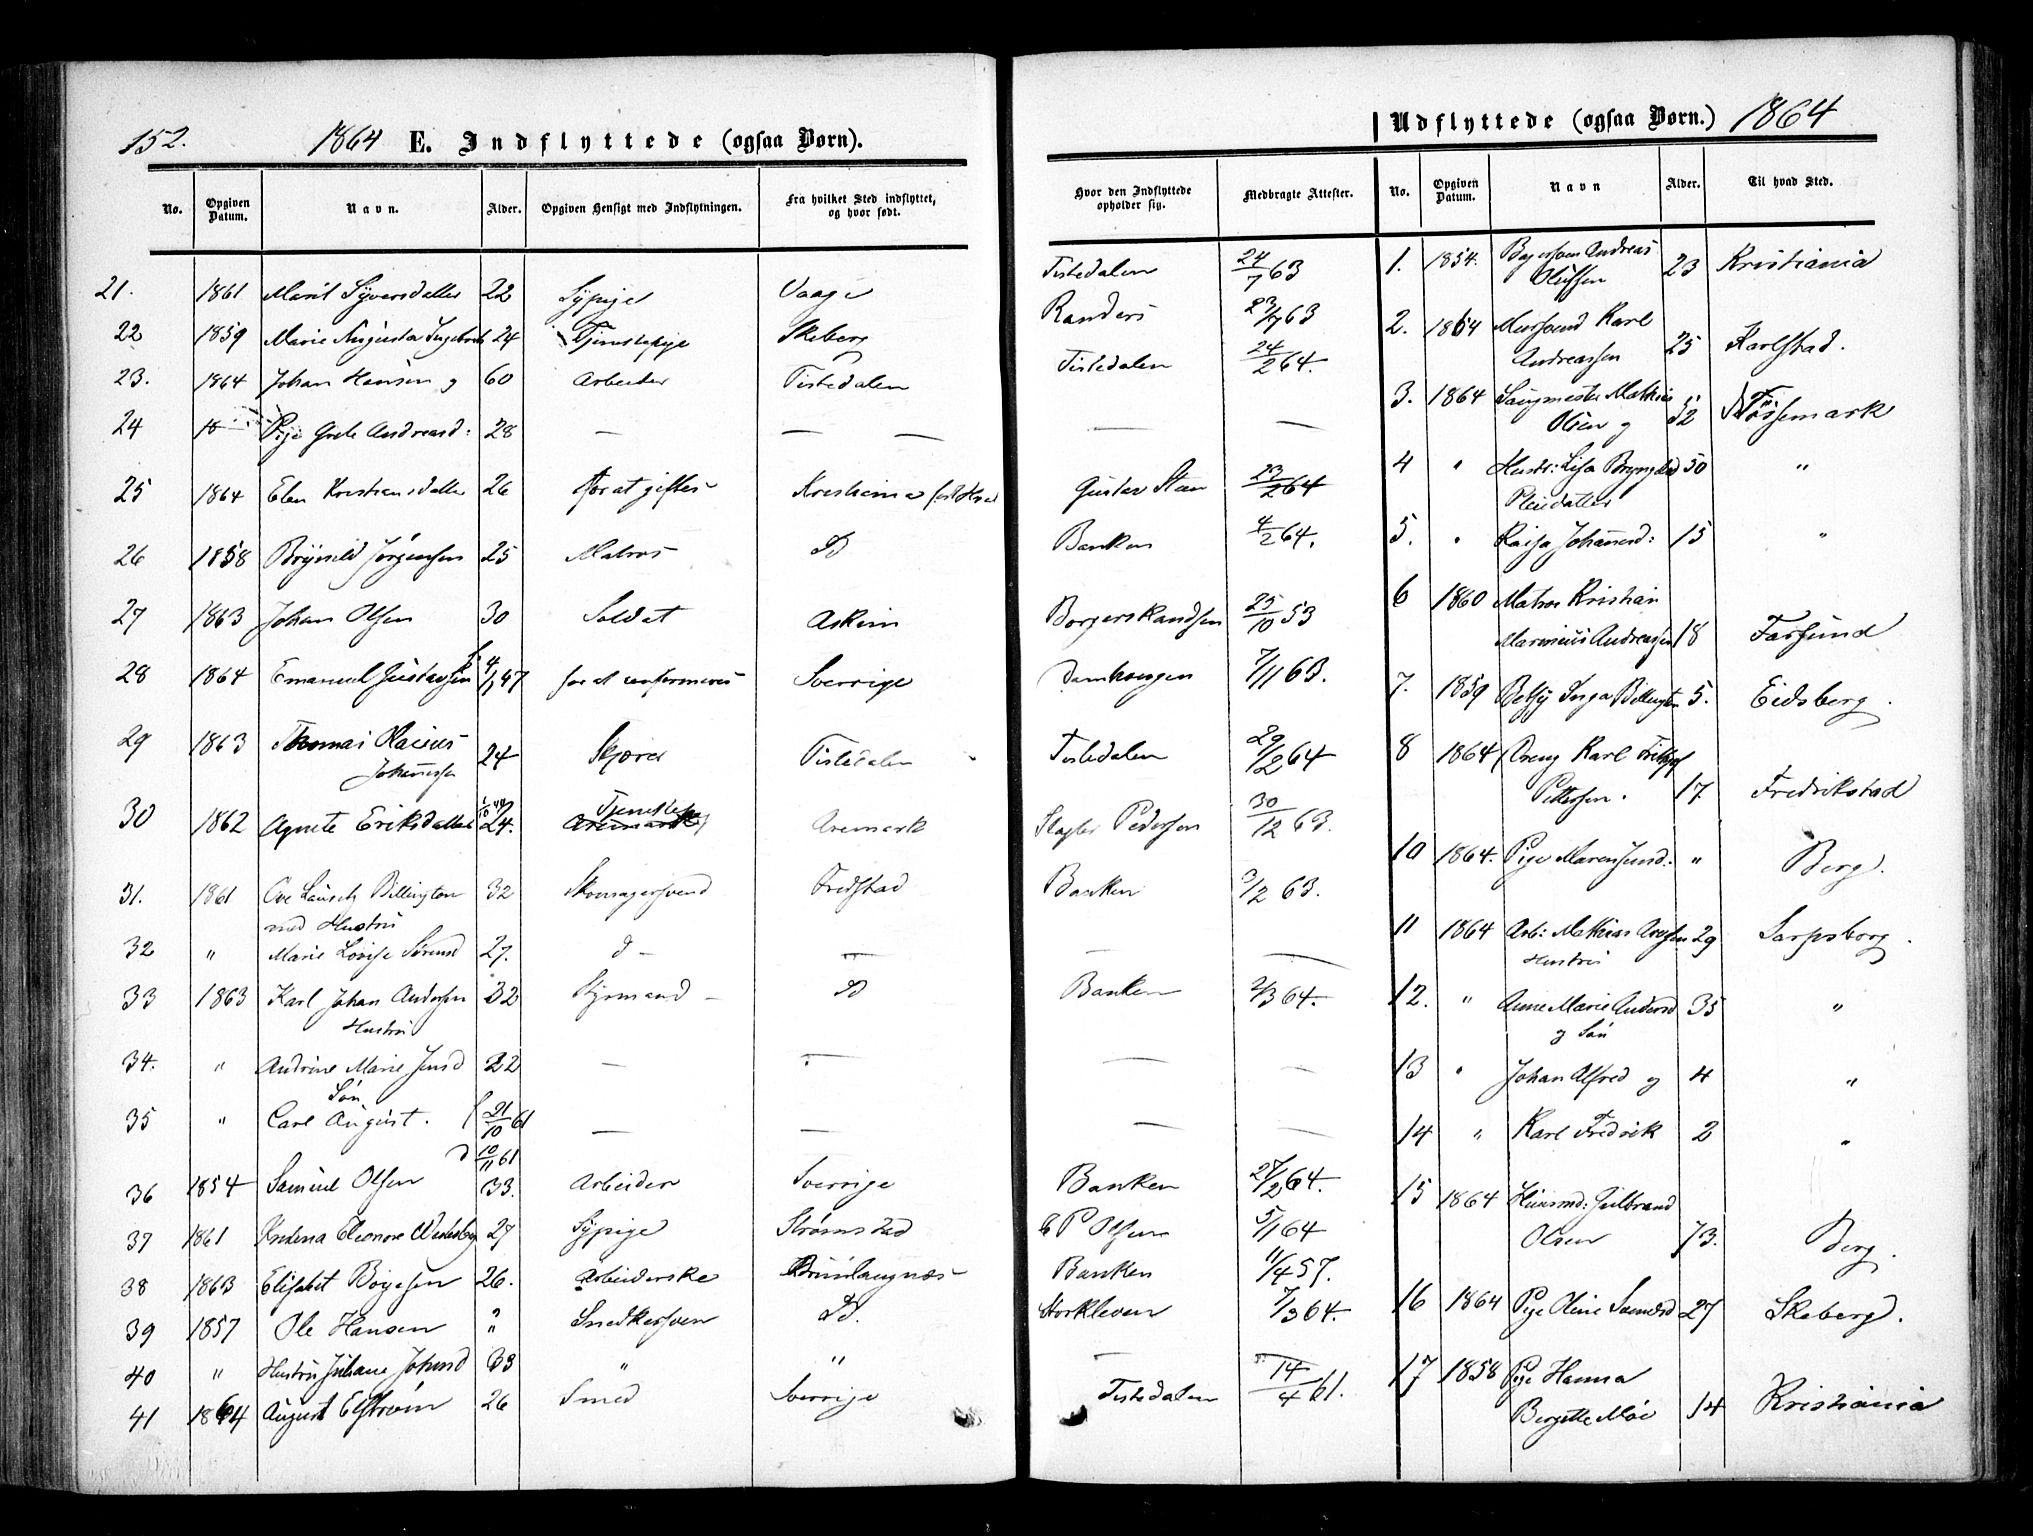 152. 1864 E. Indflyttede (ogsaa Børn).
No. Opgiven Datum. Navn. Alder. Opgiven Hensigt med Indflytningen. Fra hvilket Sted indflyttet, og hvor født.
21. 1861 Marit Syversdatter 22 Sypige Vaage
22 1859 Marie Augusta 24 Tjenestepige Skeberg
23. 1864 Johan Hansen og 60 Arbeider Tistedalen
24 Pige Grete Andreasd: 28 — — —
25 1864 Elen Kristiansdatter 26 for at giftes Kristiania
26 1858 Brynild Jørgensen 25 Matros D
27 1863 Johan Olsen 30 Soldat Askim
28 1864 Emanuel Gustavsen 4/1 47 for at confirmeres Sverrige
29 1863 Thomas
Johannessen 24 Skjærer Tistedalen
30 1862 Agnete Eriksdatter 24. Tjenestepige Aremark
31. 1861 Ove Billington 32 Skomagersvend Fredstad
med Hustru
32 " Marie Lovise Sørensd 27. d — —
33 1863 Karl Johan Andersen 32 Styrmand — D
Hustru
34. " Andrine Marie Jensd 22 — —
Søn
35 " Carl August. 21/10 61 — —
D 10/11 61
36 1854 Samuel Olsen 33. Arbeider Sverrige
37 1861 Eleonore 27 Sypige Strømstad
38 1863 Elisabet Bøyesen 26. Arbeiderske Brunlaugnæs
39 1857 Ole Hansen " Snedkersven D.
40 " Hustru Juliane Johnsd 33 " "
41 1864 August Elstrøm 26 Smed Sverrige
Udflyttede (ogsaa Børn.) 1864
Hvor den Indflyttede opholder sig. Medbragte Attester. No. Opgiven Datum. Navn Alder. Til hvad Sted.
Tistedalen 24/7 63
Randers 23/7 63
Tistedalen 24/2 64.
— —
Gustav Stan 23/2 64
Banken 4/2 64.
25/10 53
Damhaugen 7/11 63.
Tistedalen 29/2 64
Slagter Pedersen 30/12 63.
Banken 3/2 63.
— —
Banken 2/3 64.
— —
— —
Banken 28/2 64.
P Olsen 5/1 64
Banken 11/4 57.
Storkleven 7/3 64.
—
Tistedalen 14/4 61.
1. 1854. Bagersven Andreas
Olufsen 23 Kristiania
2. 1864 Muursvend Karl
Andreassen 25 Karlstad.
3. 1864 Saugmester Mathias
Olsen og 52 Fossemark
4 " Hustr: Lisa 50 "
5. " Kaisa Johannesd: 15 "
6 1860 Matros Kristian
Marinius Andreassen 18 Farsund
7. 1859 Betsy Inga Billington 5. Eidsberg.
8 1864 Dreng Karl
Pettersen. 17 Fredrikstad
10 1864. Pige Maren Jensd: " Berg.
11 1864 Arb: Mathias 29 Sarpsborg.
Hustru
12. " Anne Marie Andersd 35 "
og Søn
13 " Johan Alfred og 4 "
14 " Karl Fredrik 2 "
15 1864 Huusmd: Gulbrand
Olsen 73. Berg.
16 1864 Pige Oline 27 Skeberg.
17 1858 Pige Hanna
Bergitte Moe 14 Kristiania